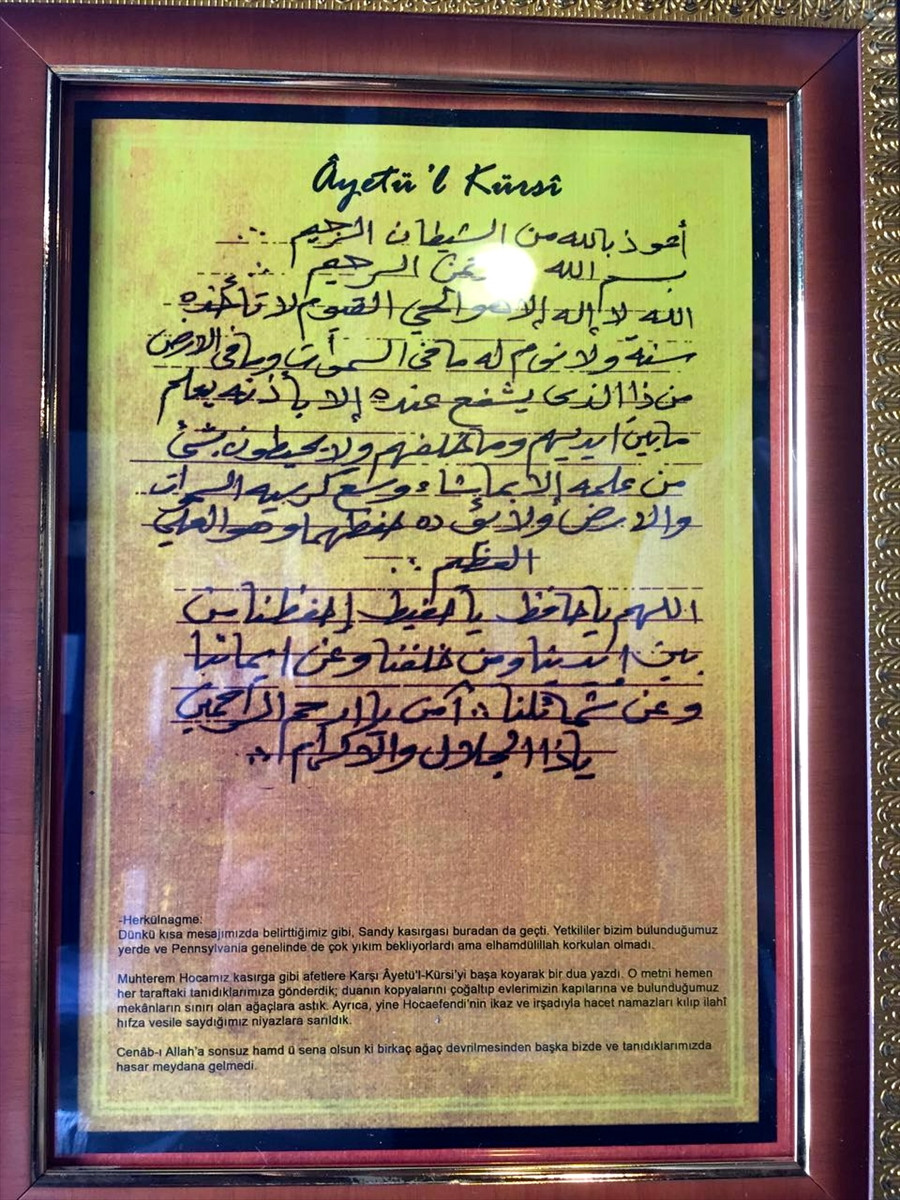 Âyetü'l Kürsî
أعوذ بالله من الشيطان الرجيم ..
بسم الله الرحيم ..
الله لا إله إلا هو الحي القيوم لا تأخذه
سنة ولا نوم له ما في السموات وما في الارض
من ذا الذى يشفع عنده إلا بأذنه يعلم
ما بين ايديهم وما خلفهم ولا يحيطون بشئ
من علمه إلا بما شاء وسع كرسيه السموات
والارض ولا يؤده حفظهما وهو العلي
العظيم ..
اللهم يا حافظ يا حفيظ إحفظنا من
بين ايدينا ومن خلفنا وعن ايماننا
وعن شمائلنا .. آمين يا ارحم الراحمين
يا ذا الجلال والإكرام ..
-Herkülnagme:
Dünkü kısa mesajımızda belirttiğimiz gibi, Sandy kasırgası buradan da geçti. Yetkililer bizim bulunduğumuz
yerde ve Pennsylvania genelinde de çok yıkım bekliyorlardı ama elhamdülillah korkulan olmadı.
Muhterem Hocamız kasırga gibi afetlere Karşı Âyetü'l-Kürsi'yi başa koyarak bir dua yazdı. O metni hemen
her taraftaki tanıdıklarımıza gönderdik; duanın kopyalarını çoğaltıp evlerimizin kapılarına ve bulunduğumuz
mekânların sınırı olan ağaçlara astık. Ayrıca, yine Hocaefendi'nin ikaz ve irşadıyla hacet namazları kılıp ilahî
hıfza vesile saydığımız niyazlara sarıldık.
Cenâb-ı Allah'a sonsuz hamd ü sena olsun ki birkaç ağaç devrilmesinden başka bizde ve tanıdıklarımızda
hasar meydana gelmedi.